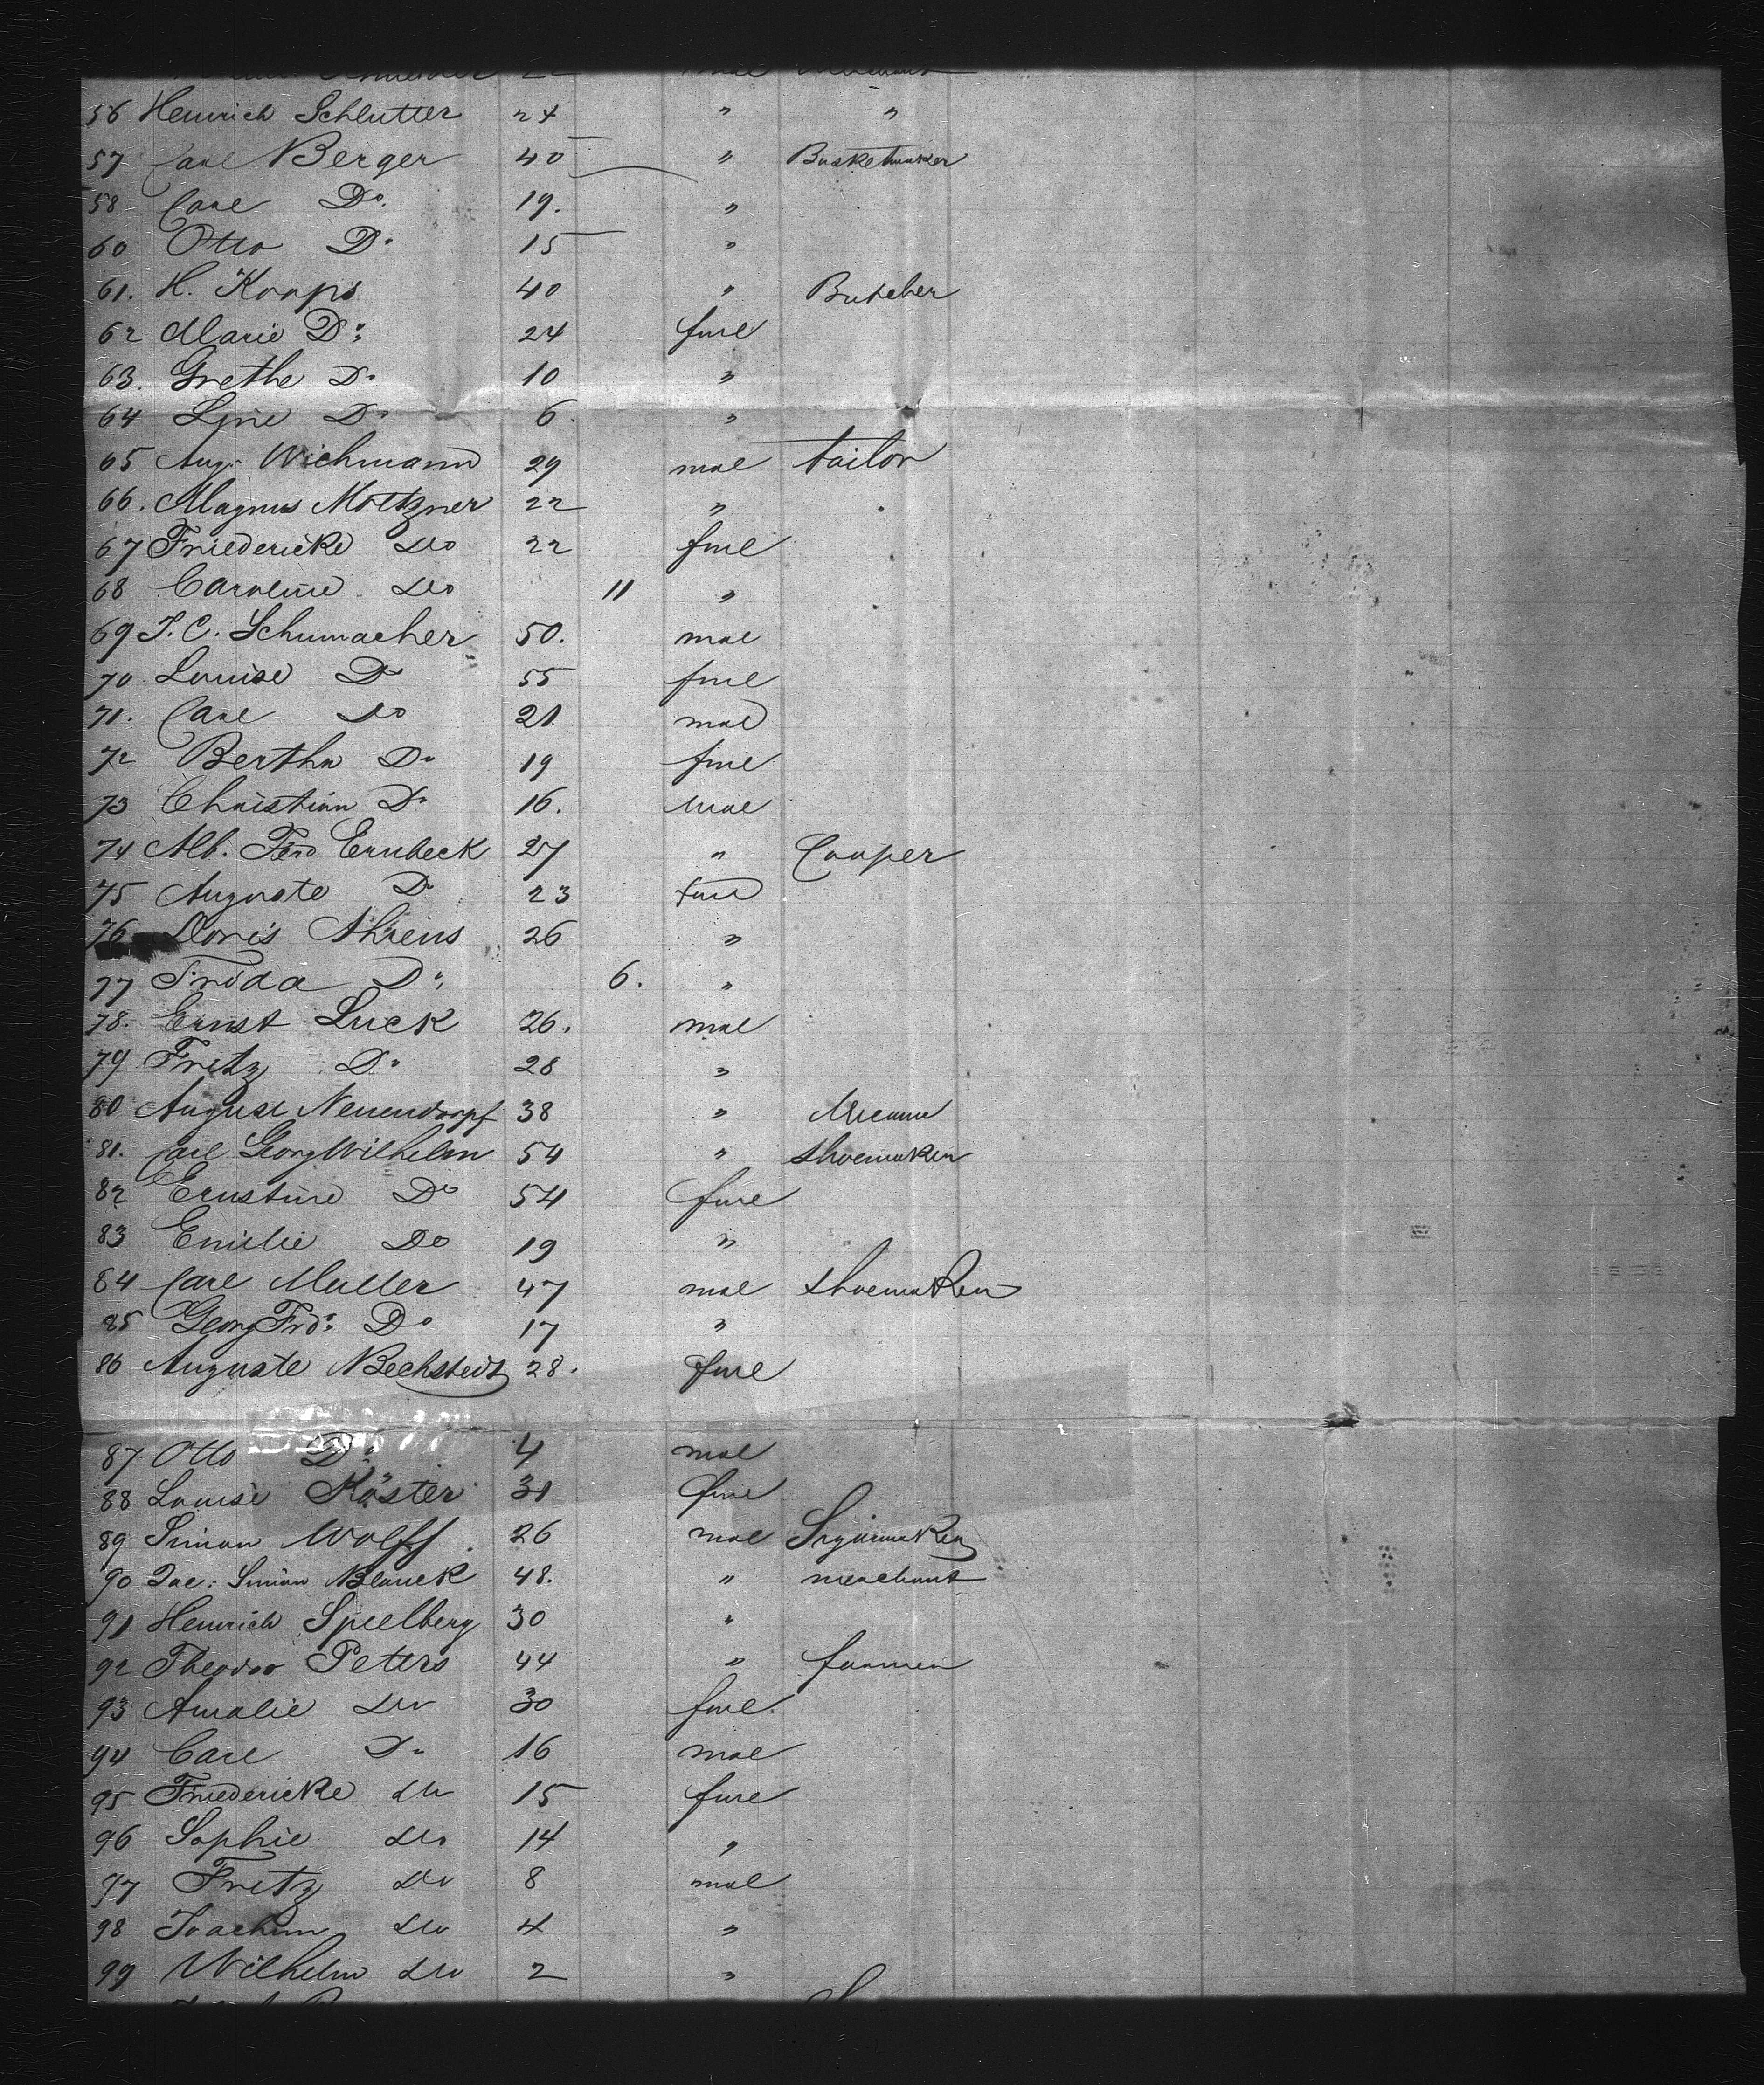 56 Heinrich Schlutter 24 " "
57 Carl Berger 40 " Basketmaker
58 Carl Do. 19. "
60 Otto Do 15 "
61. H. Koops 40 " Butcher
62 Marie Do: 24 fml
63. Grethe Do 10 "
64 Line Do 6. "
65 Aug. Wichmann 29 mal tailor
66. Magnus Moltzner 22 "
67 Friedericke Do 22 fml
68 Caroline Do 11 "
69 J. C. Schumacher 50. mal
70 Louise Do 55 fml
71. Carl Do 21 mal
72 Bertha Do 19 fml
73 Christian Do 16. mal
74 Alb. Ferd Ernbeck 27 " Cooper
75 Auguste Do 23 fml
76 Doris Ahrens 26 "
77 Frida Do: 6. "
78. Ernst Luck 26. mal
79 Fritz Do 28 "
80 August Neuendorpf 38 "
81. Carl Georg Wilhelm 54 " shoemaker
82 Ernstine Do 54 fml
83 Emilie Do 19 "
84 Carl Muller 47 mal shoemaker
85 Georg Frd: Do 17 "
86 Auguste Bechstedt 28. fml
87 Otto Do: 4 mal
88 Louise Köster 31 fml
89 Simon Wolff. 26 mal Sigarmaker
90 Jac: Simon Blanck 48. " merchant
91 Heinrich Spielberg 30 "
92 Theodor Peters 44 " farmer
93 Amalie Do 30 fml
94 Carl Do 16 mal
95 Friedericke Do 15 fml
96 Sophie Do 14 "
97 Fritz Do 8 mal
98 Joachim Do 4 "
99 Wilhelm Do 2 "